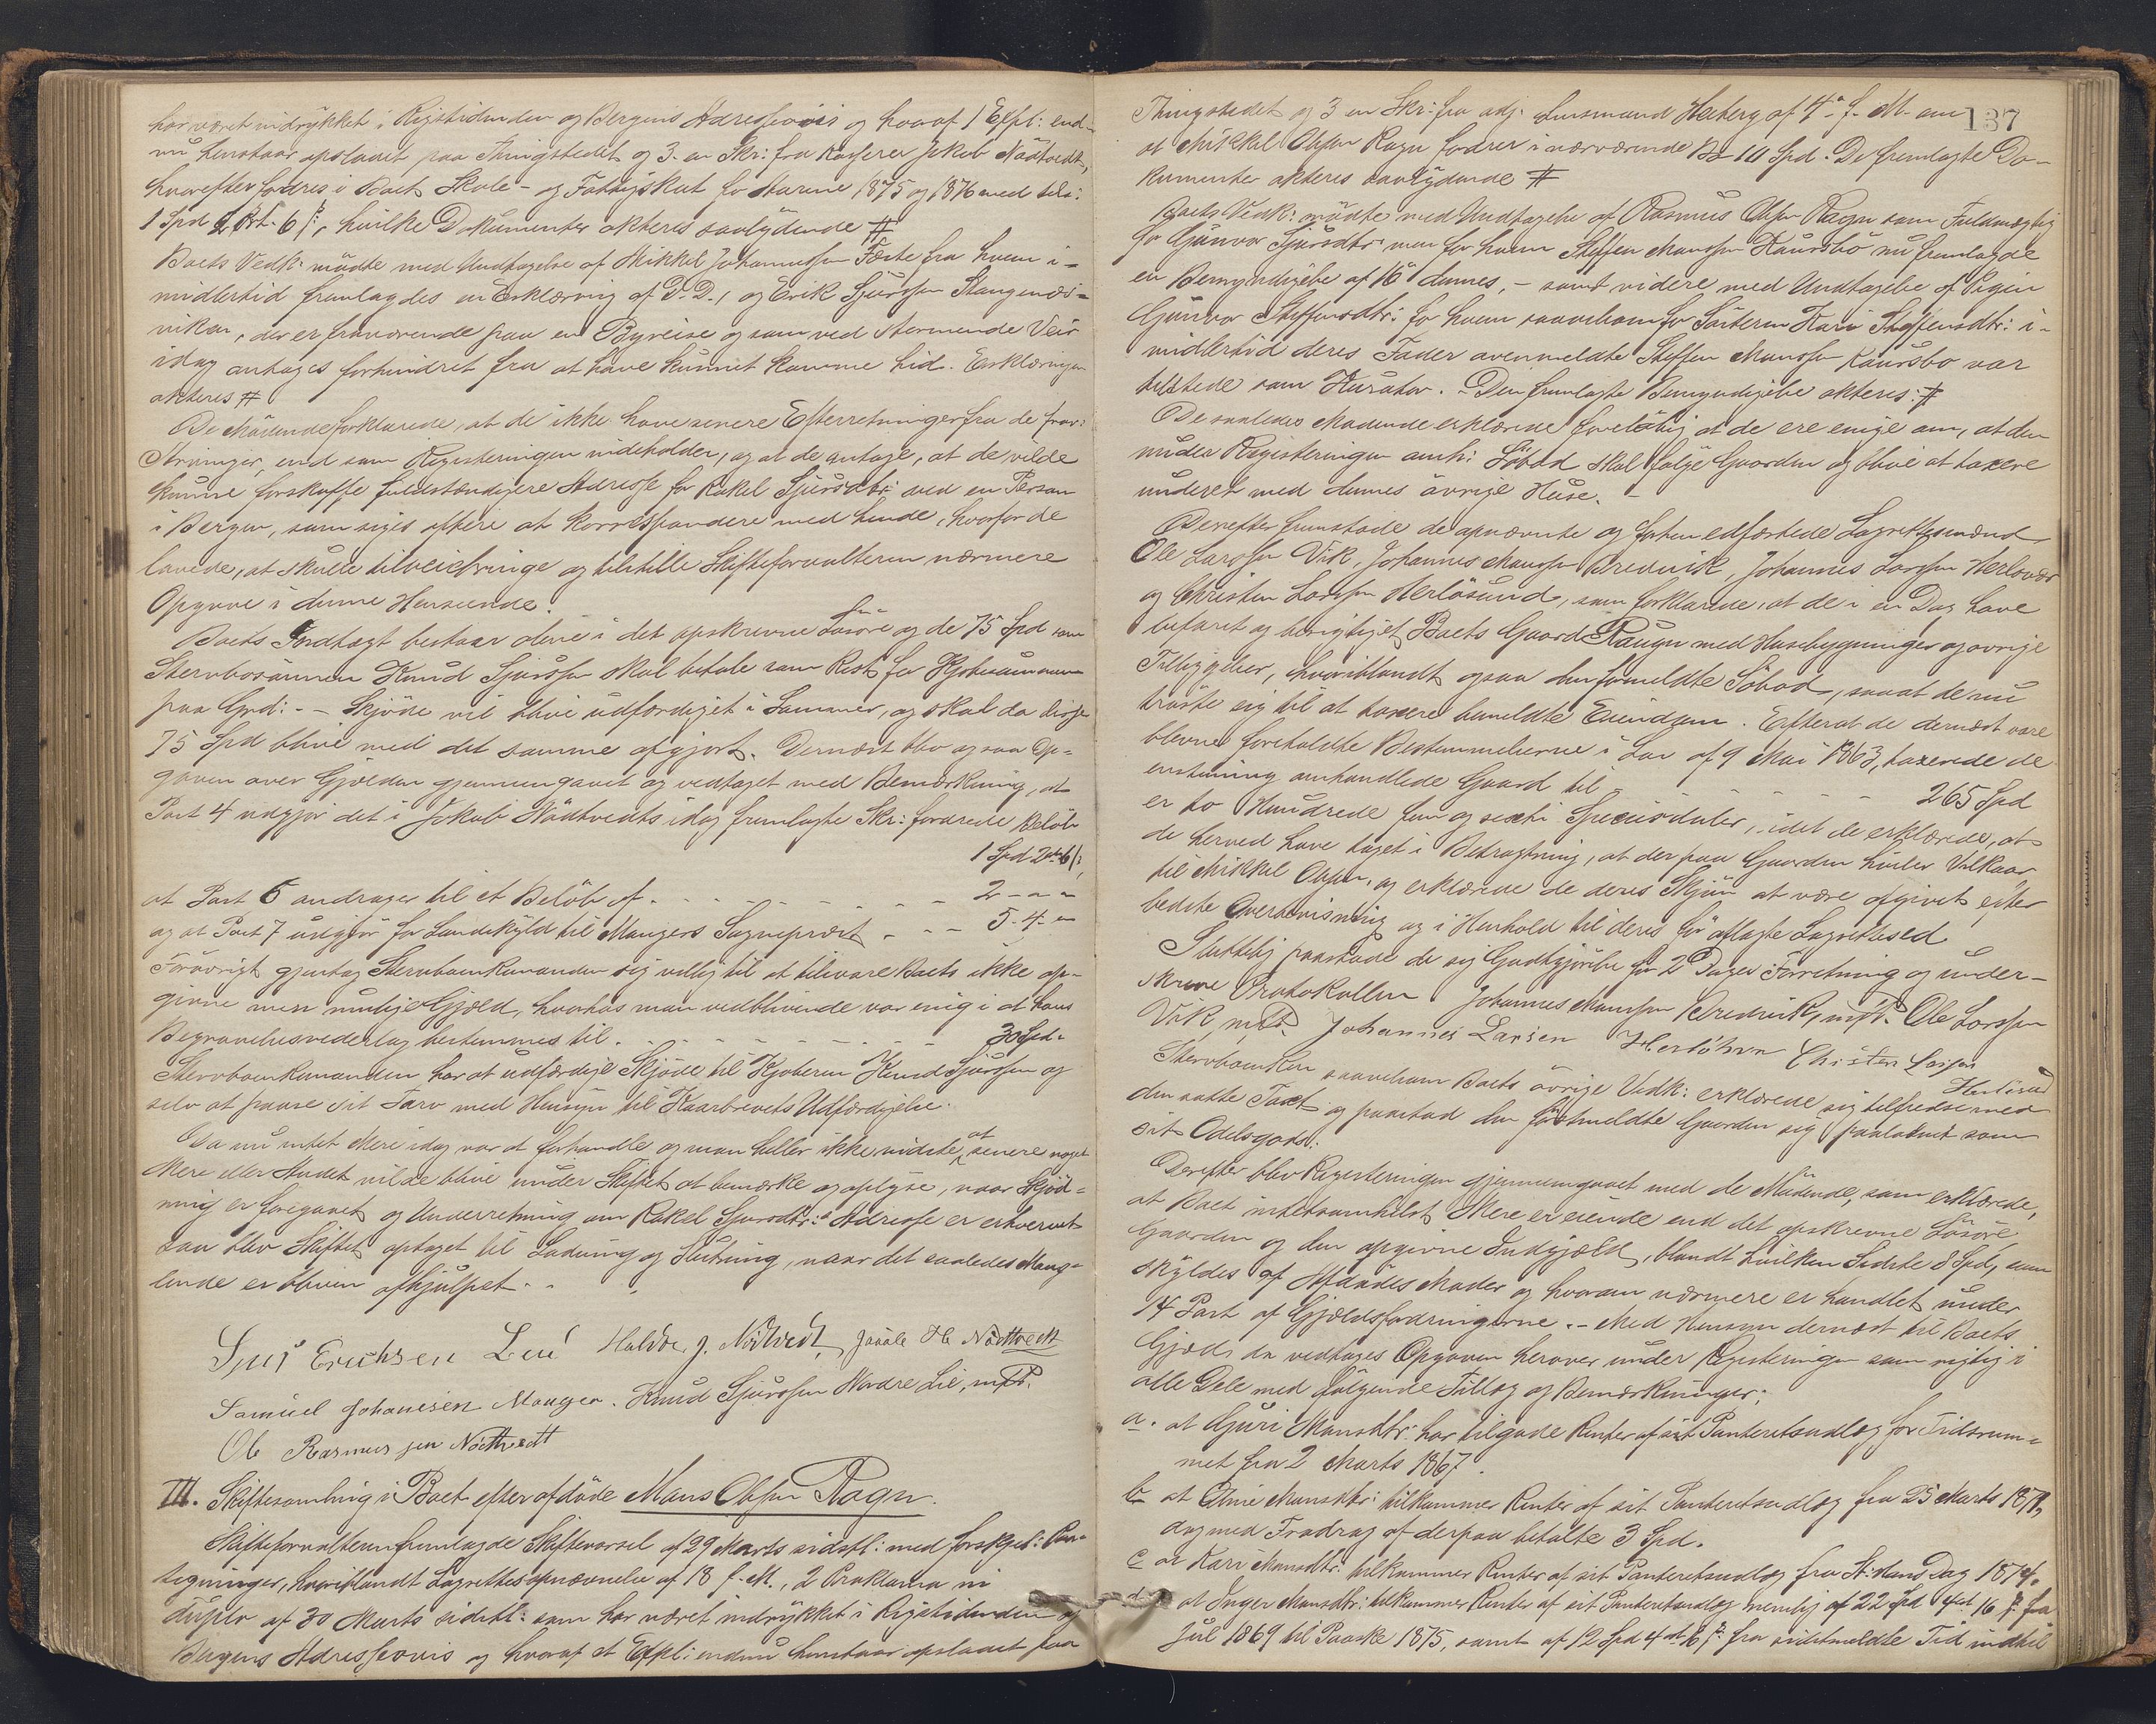 har været indrykket i Rigstidenden og Bergens Adresseavis og hvoraf 1 Expl: end-
nu henstaar opslaaet paa Thingstedet og 3. en Skr: fra Kasserer Jakob Nödtvedt,
hvorefter fordres i Boet Skole- og Fattigskat for Aarene 1875 og 1876 med tils:
1 Spd 2 Ort. 6 s:, hvilke Dokumenter akteres saalydende #
Boets Vedk: mødte med Undtagelse af Mikkel Johannessen Feste fra hvem i-
midlertid fremlagdes en Erklæring af D. D., og Erik Sjursen Skangenæs-
viken, der er fraværende paa en Byreise og som ved stormende Veir
idag antages forhindret fra at have kunnet komme hid. Erklæringen
akteres #
De Mødende forklarede, at de ikke have senere Efterretninger fra de frav:
Arvinger, end som Registeringen indeholder, og at de antage, at de vilde
kunne forskaffe fuldstændigere Adresse for Rakel Sjursdtr: ved en Person
i Bergen, som siges oftere at korrespondere med hende, hvorfor de
lovede, at skulle tilveiebringe og tilstille Skifteforvalteren nærmere
Opgave i denne Henseende.
Boets Indtægt bestaar alene i det opskrevne Løsøre og de 75 Spd som
Stervbosønnen Knud Sjursen skal betale som Rest for Kjøbesummen
paa Grd: - Skjøde vil blive udfærdiget i Sommer, og skal da disse
75 Spd blive med det samme afgjort. Dernæst blev ogsaa Op-
gaven over Gjælden gjennemgaaet og vedtaget med Bemærkning, at
Post 4 udgjør det i Jakob Nödtvedts idag fremlagte Skr: fordrede Beløb
1 Spd 2 ort 6 s:
at Post 6 andrager til et Beløb af - - - - - - 2 - " - "
og at Post 7 udgjør for Landskyld til Mangers Sogneprest - - - 5 - 4 - "
Forøvrigt gjentog Stervboenkemanden sig villig til at tilsvare Boets ikke op-
givne men mulige Gjæld, hvorhos man vedblivende var enig i at hans
Begravelsesvederlag bestemmes til - - - - - - - 30 Spd.
Stervboenkemanden har at udfærdige Skjøde til Kjøberen Knud Sjursen og
selv at passe sit Tarv med Hensyn til Kaarbrevets Udfærdigelse.
Da nu intet Mere idag var at forhandle og man heller ikke vidste at senere noget
Mere eller Andet vilde blive under Skiftet at bemærke og oplyse, naar Skjød-
ning er foregaaet og Underretning om Rakel Sjursdtr:s Adresse er erhvervet
saa blev Skiftet optaget til Lodning og Slutning, naar det saaledes Mang-
lende er bleven afhjulpet. -
Sjur Erichsen Lie Haldor J. Nödtvedt, Jakob Ols Nødtvedt
Samuel Johanesen Manger. Knud Sjursen Nordre Lie, m.f.P.
Ole Rasmus sen Nödtvedt
III. Skiftesamling i Boet efter afdøde Mans Olsen Ragn.
Skifteforvalteren fremlagde Skiftevarsel af 29 Marts sidstl: med forskjel: Paa-
tegninger, hvoriblandt Lagrettesopnævnelse af 18 f. M., 2 Proklama in
duplo af 30 Marts sidstl: som har været indrykket i Rigstidenden og
Bergens Adresseavis og hvoraf et Expl: endnu henstaar opslaaet paa
137
Thingstedet og 3 en Skr: fra adj. Lensmand Heiberg af 4de f. M. om
at Mikkel Olsen Ragn fordrer i nærværende Bo 111 Spd. De fremlagte Do-
kumenter akteres saalydende #
Boets Vedk: mødte med Undtagelse af Rasmus Olsen Ragn som Fuldmægtig
for Gunvor Sjursdtr: men for hvem Steffen Mansen Kaursbø nu fremlagde
en Bemyndigelse af 16de dennes, - samt videre med Undtagelse af Pigen
Gunvor Steffensdtr: for hvem saavelsom for Søsteren Kari Steffensdtr: i-
midlertid deres Fader ovenmeldte Steffen Mansen Kaursbø var
tilstede som Kurator. - Den fremlagte Bemyndigelse akteres: #
De saaledes Mødende erklærede foreløbig at de ere enige om, at den
under Registeringen omh: Søbod skal følge Gaarden og blive at taxere
underet med dennes øvrige Huse. -
Derefter fremstode de opnævnte og forhen edfæstede Lagrettesmænd
Ole Larsen Vik, Johannes Mansen Bredvik, Johannes Larsen Herløvær
og Christen Larsen Herløsund, som forklarede, at de i en Dag have
befaret og besigtiget Boets Gaard Raugn med Husebygninger og øvrige
Tilliggelser, hvoriblandt ogsaa den formeldte Søbod, saa at de nu
trøste sig til at taxere bemeldte Eiendom. Efterat de dernæst vare
blevne foreholdte Bestemmelserne i Lov af 9 Mai 1863, taxerede de
enstemmig omhandlede Gaard til - - - - - 265 Spd
er to Hundrede fem og sexti Speciesdaler, idet de erklærede, at
de herved have taget i Betragtning, at der paa Gaarden hviler Vilkaar
til Mikkel Olsen, og erklærede de deres Skjøn at være afgivet efter
bedste Overbevisning og i Henhold til deres før aflagte Lagrettesed
Sluttelig paastode de sig Godtgjørelse for 2 Dages Forretning og under-
skreve Protokollen Johannes Mansen Bredvik, m.f.P. Ole Larsen
Vik, m.f.P. Johannes Larsen Herlöhvr Christen Larsen
Herlösund
Stervboenken saavelsom Boets øvrige Vedk: erklærede sig tilfredse med
den satte Taxt og paastod den førstmeldte Gaarden sig paalodnet som
sit Odelsgods.
Derefter blev Registeringen gjennemgaaet med de Mødende, som erklærede,
at Boet intetsomhelst Mere er eiende end det opskrevne Løsøre,
Gaarden og den opgivne Indgjæld, blandt hvilken Sidste 8 Spd, som
skyldes af Afdødes Moder og hvorom nærmere er handlet under
14 Post af Gjældsfordringerne. - Med Hensyn dernæst til Boets
Gjæld, da vedtages Opgaven herover under Registeringen som rigtig i
alle Dele med følgende Tillæg og Bemærkninger:
a. at Guri Mansdtr: har tilgode Renter af sit Panteretsudlæg for Tidsrum-
met fra 2 Marts 1867.
b at Anne Mansdtr: tilkommer Renter af sit Panteretsudlæg fra 25 Marts 1871,
dog med Fradrag af derpaa betalte 3 Spd.
c at Kari Mansdtr: tilkommer Renter af sit Panteretsudlæg fra St: Hans Dag 1874.
d. at Inger Mansdtr: tilkommer Renter af sit Panteretsudlæg nemlig af 22 Spd 4 ort 16 s: fra
Jul 1869 til Paaske 1875, samt af 12 Spd 4 ort 6 s: fra sidstmeldte Tid indtil